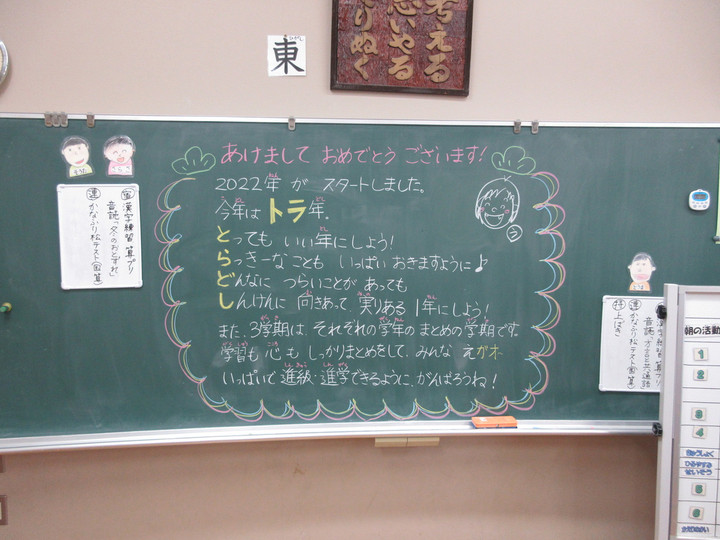 東
考える
思いやる
やりぬく
あけまして おめでとう ございます!
2022年 が スタートしました。
今年は トラ年。
とっても いい年にしよう!
らっきーなことも いっぱい おきますように♪
どんなに つらいことが あっても
しんけんに 向きあって、実りある 1年にしよう!
また、3学期は それぞれの学年の まとめの学期です。
学習も 心も しっかりまとめをして、みんな えガオ
いっぱいで 進級・進学できるように、がんばろうね!
漢字練習 算プリ
音読「冬のおとずれ」
かなぶり松テスト(国算)
漢字練習 算プリ
かなぶり松テスト(国算)
上ばき
朝の活動
1
2
3
4
きゅうしょく
ひるやすみ
せいそう
5
6